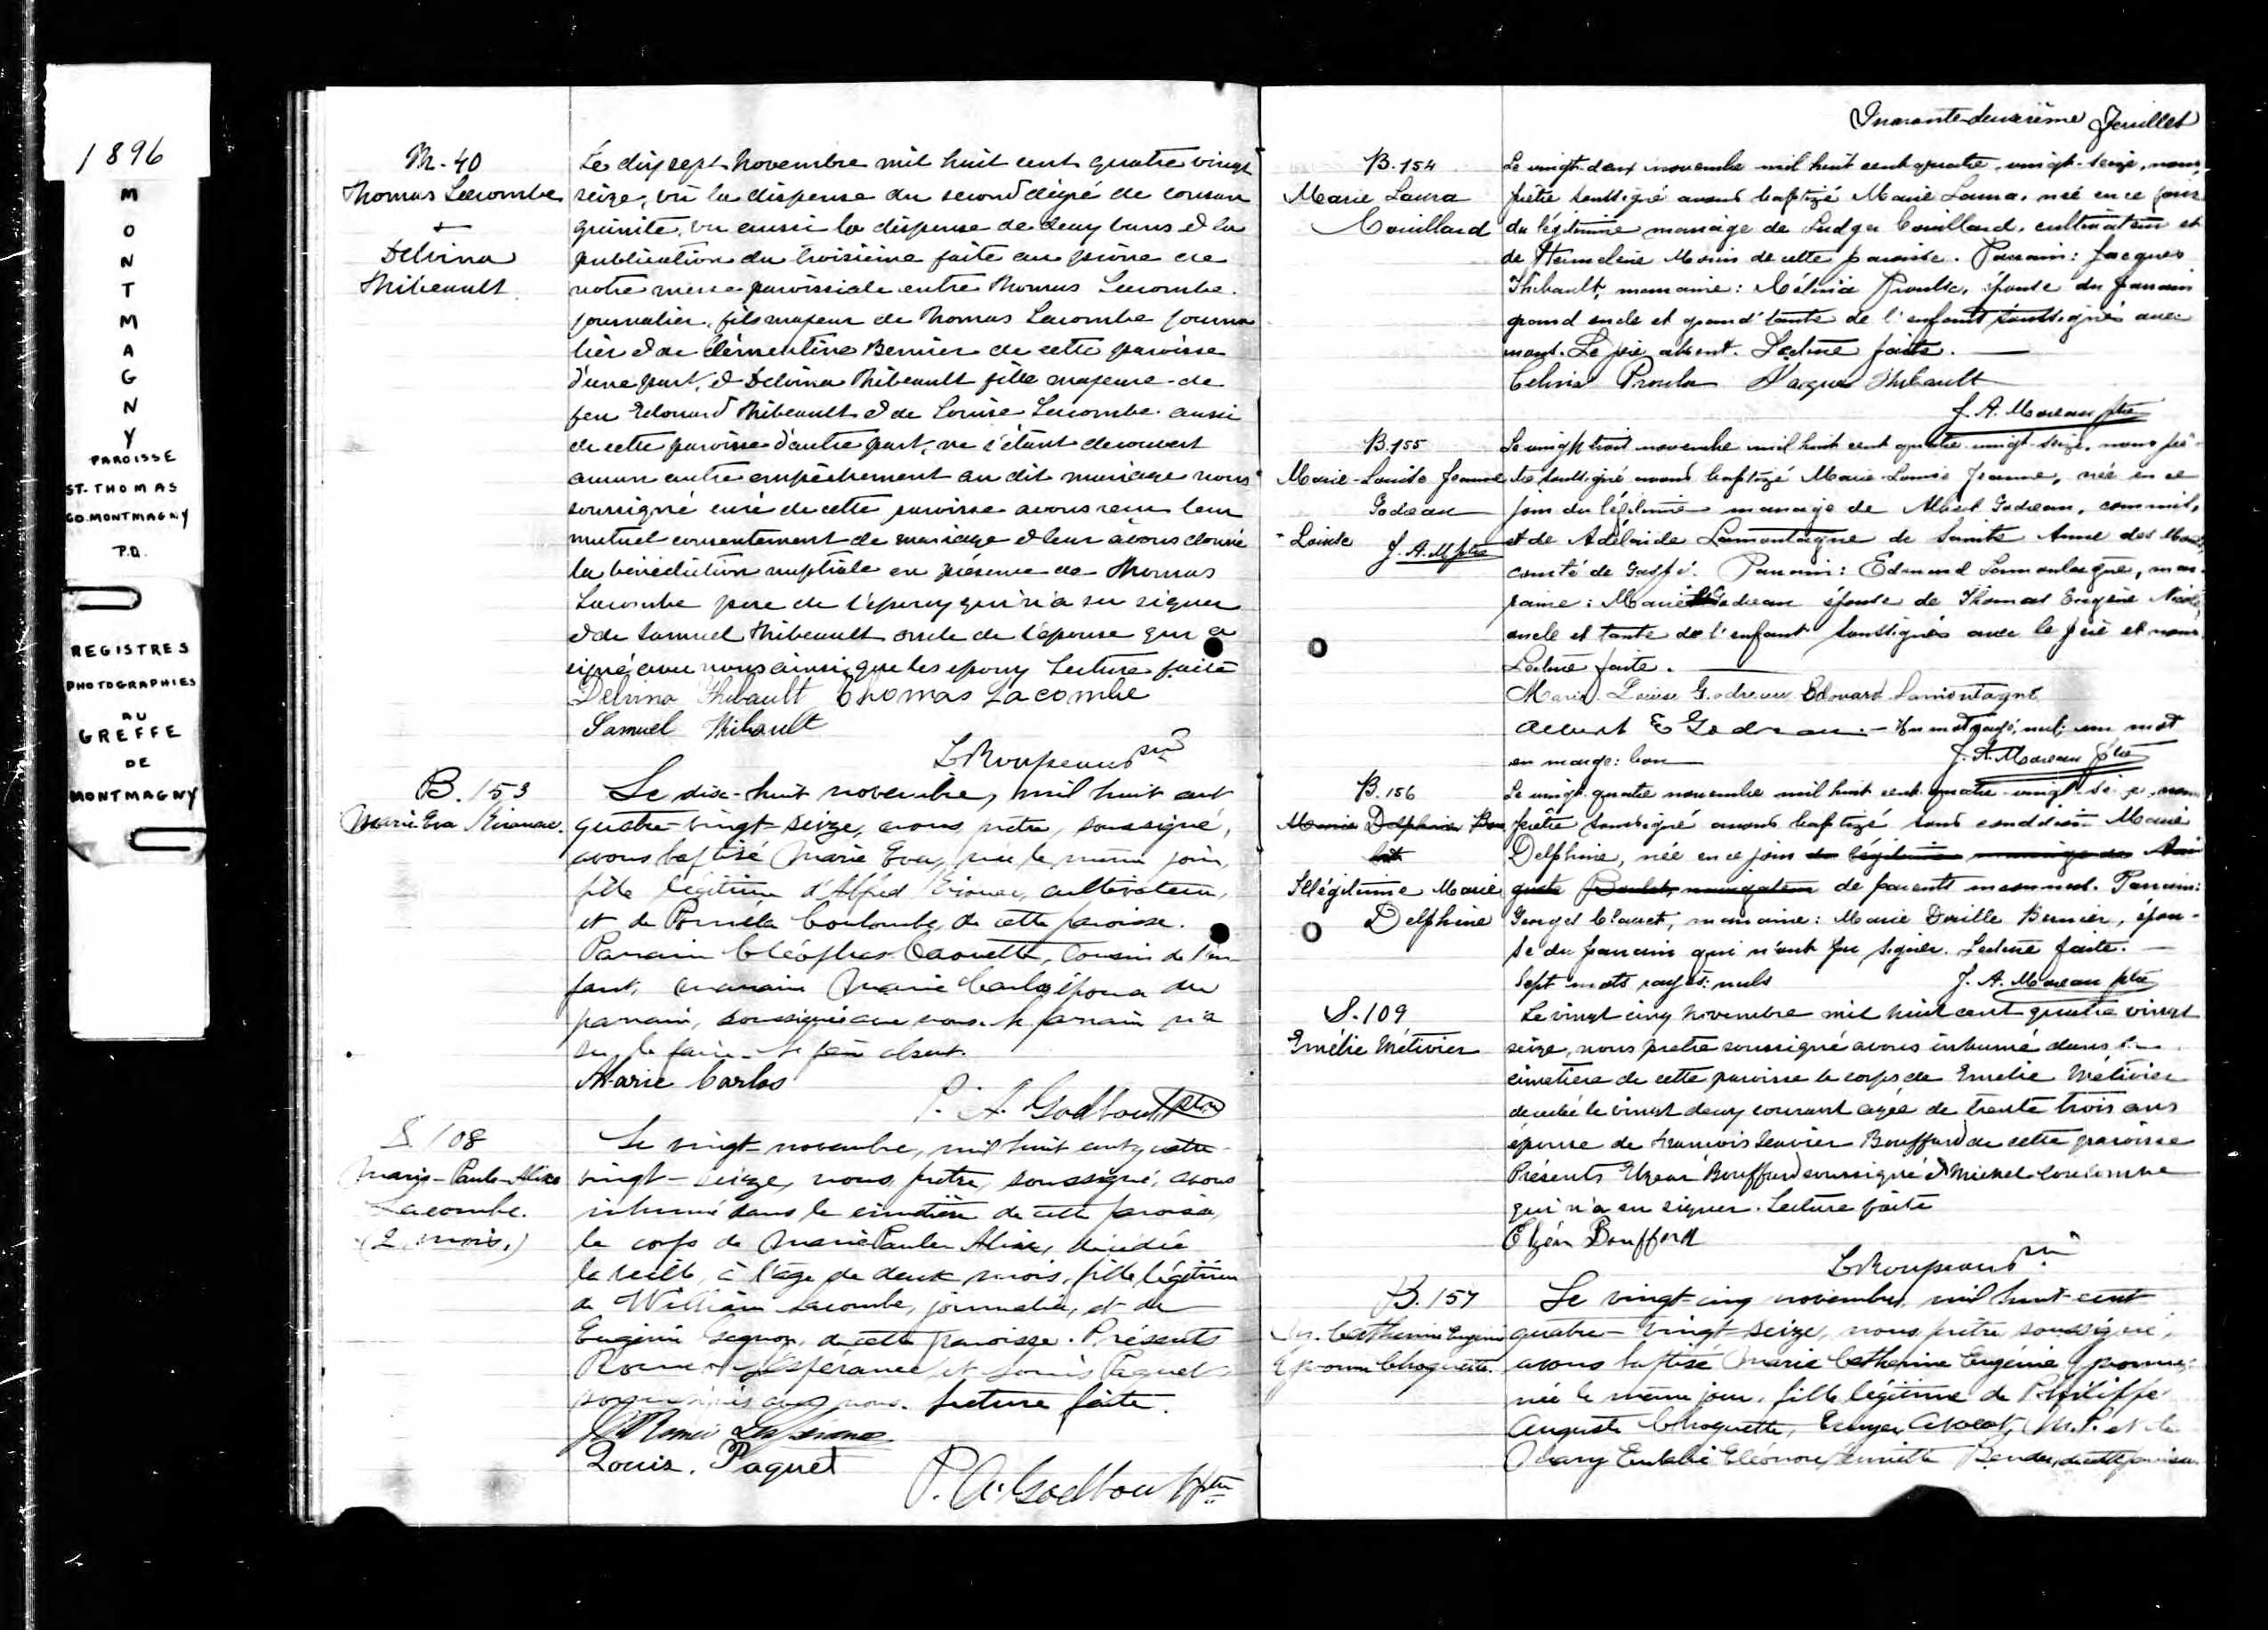 1896
MONTMAGNY
PAROISSE
ST. THOMAS
CO. MONTMAGNY
P.Q.
REGISTRES
PHOTOGRAPHIES
AU
GREFFE
DE
MONTMAGNY
M. 40
Thomas Lacombe
+
Delvina
Thibeault
Le dix sept novembre mil huit cent quatre vingt
seize, vu la dispense du second dégré de consan
guinité, vu aussi la dispense de deux bans & la
publication du troisième faite au prône de
notre messe paroissiale entre Thomas Lacombe
journalier, fils majeur de Thomas Lacombe journa
lier & de Clémentine Bernier de cette paroisse
d'une part, & Delvina Thibeault fille majeure de
feu Edouard Thibeault & de Louise Lacombe aussi
de cette paroisse d'autre part, ne s'étant découvert
aucun autre empêchement au dit mariage nous
soussigné curé de cette paroisse avons reçu leur
mutuel consentement de mariage & leur avons donné
la bénédiction nuptiale en présence de Thomas
Lacombe père de l'époux qui n'a su signer
& de Samuel Thibeault oncle de l'épouse qui a
signé avec nous ainsi que les époux Lecture faite
Delvina Thibault Thomas Lacombe
Samuel Thibault
B. 153
Marie Eva
Le dix-huit novembre, mil huit cent
quatre-vingt-seize, nous prêtre, soussigné,
avons baptisé Marie Eva, née le même jour,
fille légitime d'Alfred cultivateur,
et de Coulombe, de cette paroisse.
Parrain Cléophas Caouette, cousin de l'en
fant, marraine Marie Carlos épouse du
parrain, soussignée avec nous. le parrain n'a
su le faire. Le père absent.
Marie Carlos
P. A. Godbout ptre
S. 108
Marie-Paule-Alice
Lacombe.
(2 mois.)
Le vingt novembre, mil huit cent quatre-
vingt-seize, nous prêtre, soussigné, avons
inhumé dans le cimetière de cette paroisse,
le corps de Marie Paule Alice, décédée
la veille, à l'âge de deux mois, fille légitime
de William Lacombe, journalier, et de
Eugénie Gagnon, de cette paroisse. Présents
Lespérance et Louis Paquet
soussignés avec nous. Lecture faite.
Louis. Paquet
P. A. Godbout ptre
Quarante-deuxième feuillet
B. 154
Marie Laura
Couillard
Le vingt-deux novembre mil huit cent quatre-vingt-seize, nous,
prêtre soussigné avons baptizé Marie Laura, née en ce jour
du légitime mariage de Ludger Couillard, cultivateur et
de Morin de cette paroisse. Parrain: Jacques
Thibault, marraine: Célina Proulx, épouse du parrain
grand oncle et grand'tante de l'enfant soussignés avec
nous. Le père absent. Lecture faite.
Célina Proulx Jacques Thibault
J. A. Moreau ptre
B. 155
Marie-Louise Jeanne
Godreau
" Louise J. A. M ptre
Le vingt-trois novembre mil huit cent quatre-vingt-seize, nous prê-
tre soussigné avons baptizé Marie Louise Jeanne, née en ce
jour du légitime mariage de Albert Godreau, commis,
et de Adélaide Lamontagne de Sainte Anne des Monts,
comté de Gaspé. Parrain: Edouard Lamontagne, mar-
raine: Marie Godreau épouse de Thomas Eugène Nicole,
oncle et tante de l'enfant soussignés avec le père et nous.
Lecture faite.
Marie Louise Godreau Edouard Lamontagne
Albert E Godreau. - Un mot rayé, nul; un mot
en marge: bon J. A. Moreau ptre
B. 156
Marie Delphine
Illégitime Marie
Delphine
Le vingt-quatre novembre mil huit cent quatre-vingt-seize, nous
prêtre soussigné avons baptizé sous condition Marie
Delphine, née en ce jour du légitime mariage de Au
guste Boulet, navigateur de parents inconnus. Parrain:
Georges Clouet, marraine: Marie Bernier, épou-
se du parrain qui n'ont pu signer. Lecture faite.
Sept mots rayés: nuls J. A. Moreau ptre
S. 109
Emélie Métivier
Le vingt cinq novembre mil huit cent quatre vingt
seize, nous prêtre soussigné avons inhumé dans le
cimetière de cette paroisse le corps de Emélie Métivier
décédée le vingt deux courant agée de trente trois ans
épouse de François Xavier Bouffard de cette paroisse
Présents Elzéar Bouffard soussigné & Michel Coulombe
qui n'a su signer. Lecture faite
Elzéar Bouffard
B. 157
M. Catherine Eugénie
Choquette.
Le vingt-cinq novembre, mil huit-cent
quatre-vingt-seize, nous prêtre soussigné,
avons baptisé Marie Catherine Eugénie
née le même jour, fille légitime de Philippe
Auguste Choquette, Ecuyer, Avocat, M.P. et de
Mary Eulalie Eléonore Henriette Bender, de cette paroisse